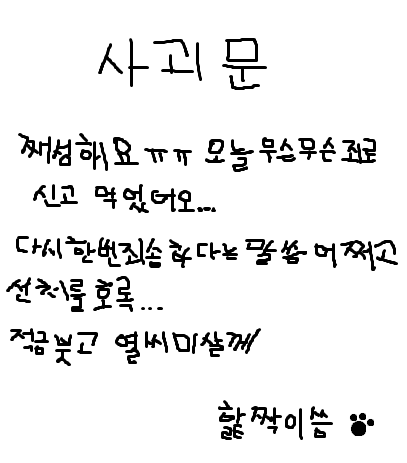 사괴문
째성해요 ㅠㅠ 오늘 무슨무슨죄로
신고 먹었어오...
다시한번죄송하다는말씀어쩌고
선처를호록...
적금붓고 열씨미살께
핥짝이씀